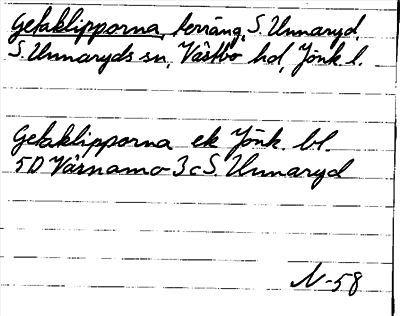 Getaklipporna, terräng, S. Unnaryd,
S. Unnaryds sn, Västbo hd, Jönk l.
Getaklipporna ek Jönk. bl.
5D Värnamo 3c S. Unnaryd
N-58